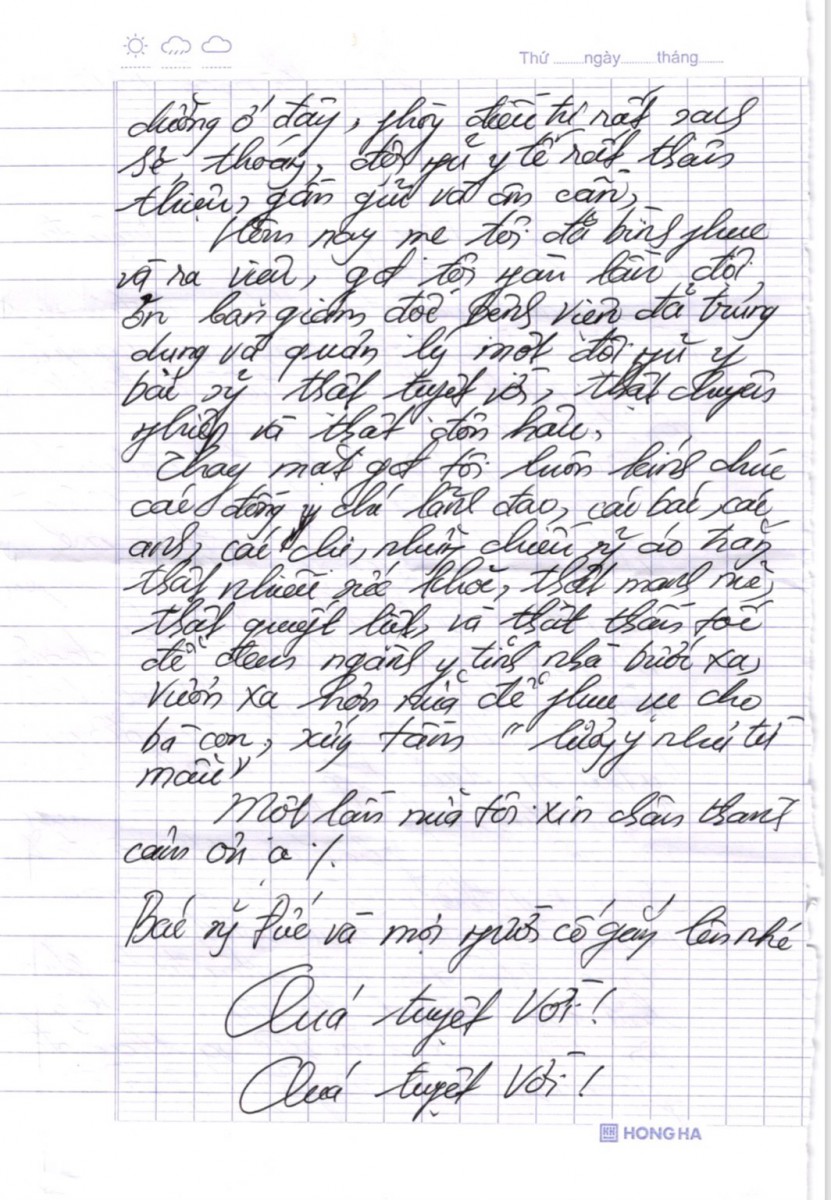 Thứ ........ngày.........tháng.......
dưỡng ở đây, phòng điều trị rất sạch
sẽ thoáng, đội ngũ y tế rất thân
thiện, gần gũi và ân cần,
Hôm nay mẹ tôi đã bình phục
và ra viện, gđ tôi ngàn lần đội
ơn ban giám đốc bệnh viện đã trưng
dụng và quản lý một đội ngũ y
bác sỹ thật tuyệt vời, thật chuyên
nghiệp và thật đôn hậu,
Thay mặt gđ tôi luôn kính chúc
các đồng chí lãnh đạo, các bác, các
anh, các chị, những chiến sỹ áo trắng
thật nhiều sức khoẻ, thật mạnh mẽ,
thật quyết liệt, và thật thần tốc
để đem ngành y tỉnh nhà bước xa,
vươn xa hơn nữa để phục vụ cho
bà con, xứng tầm "lương y như từ
mẫu"
Một lần nữa tôi xin chân thành
cảm ơn ạ ./.
Bác sỹ Đức và mọi người cố gắng lên nhé
Quá tuyệt vời !
Quá tuyệt vời !
HONG HA